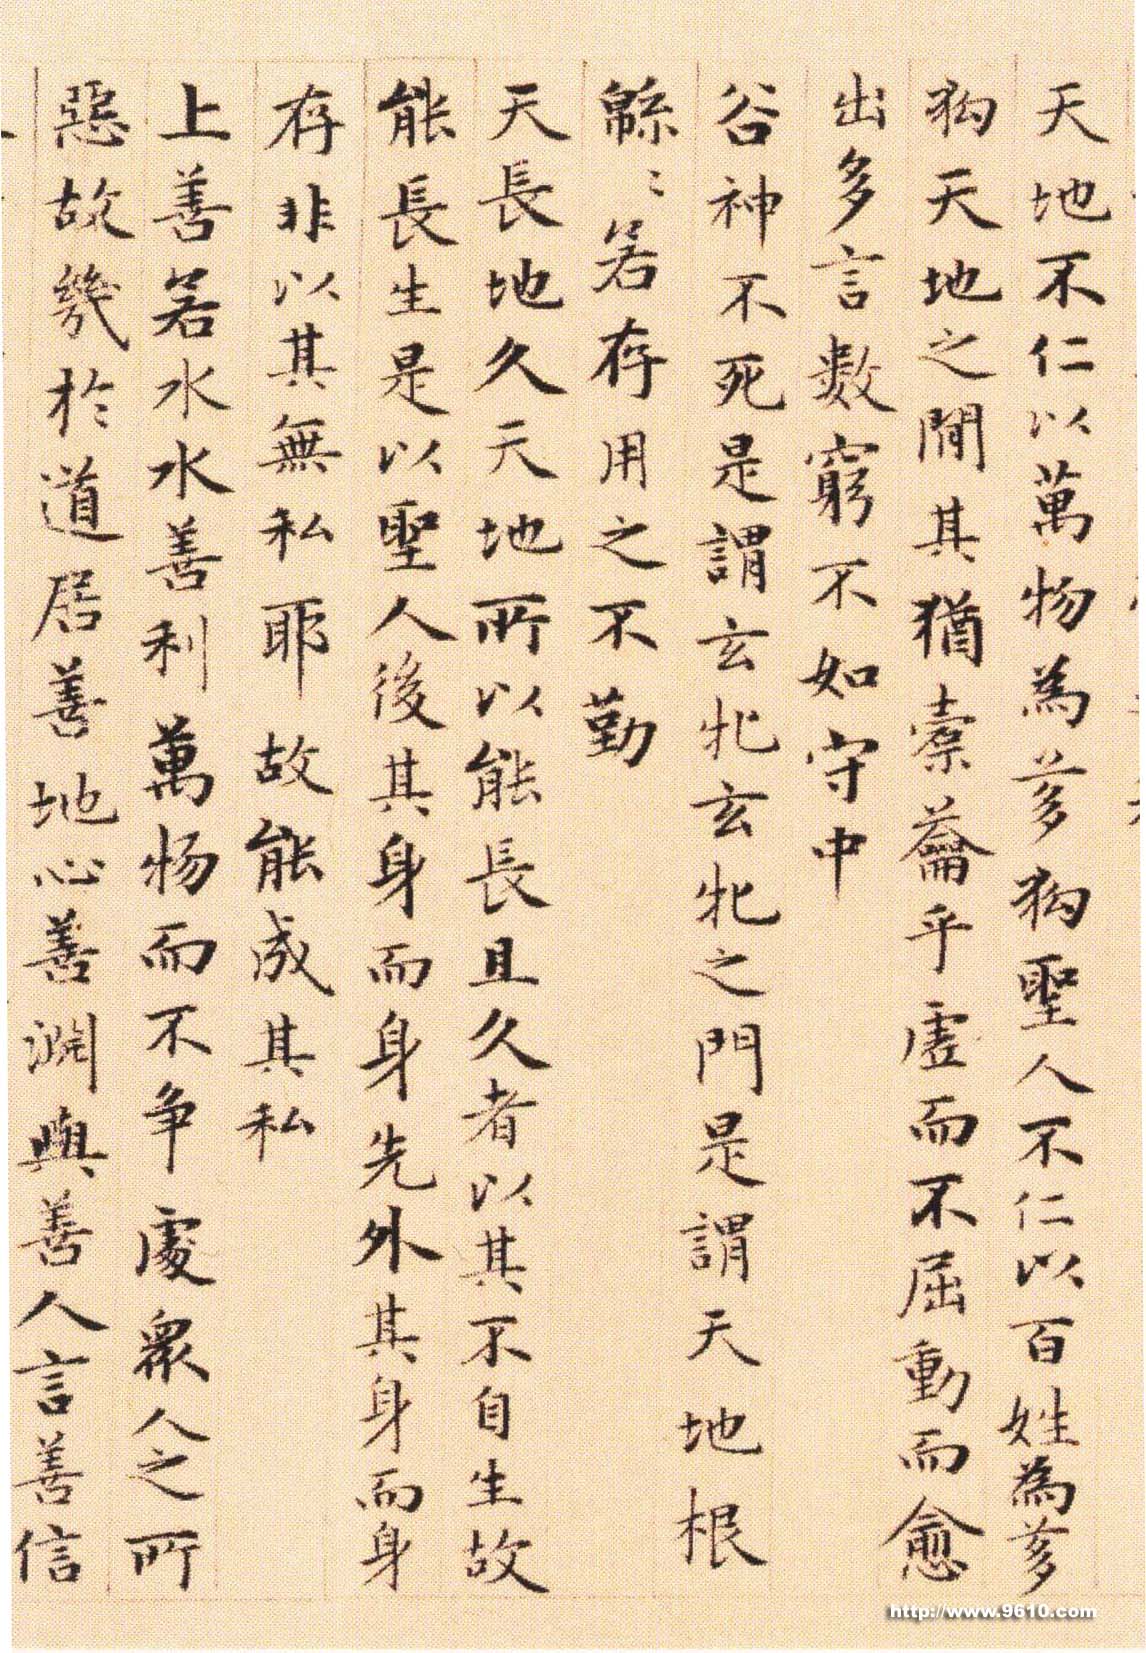 天地不仁以萬物為芻狗聖人不仁以百姓為芻
狗天地之間其猶橐蘥乎虛而不屈動而愈
出多言數窮不如守中
谷神不死是謂玄牝玄牝之門是謂天地根
綿〻若存用之不勤
天長地久天地所以能長且久者以其不自生故
能長生是以聖人後其身而身先外其身而身
存非以其無私耶故能成其私
上善若水水善利萬物而不爭處眾人之所
惡故幾於道居善地心善淵與善人言善信
http://www.9610.com